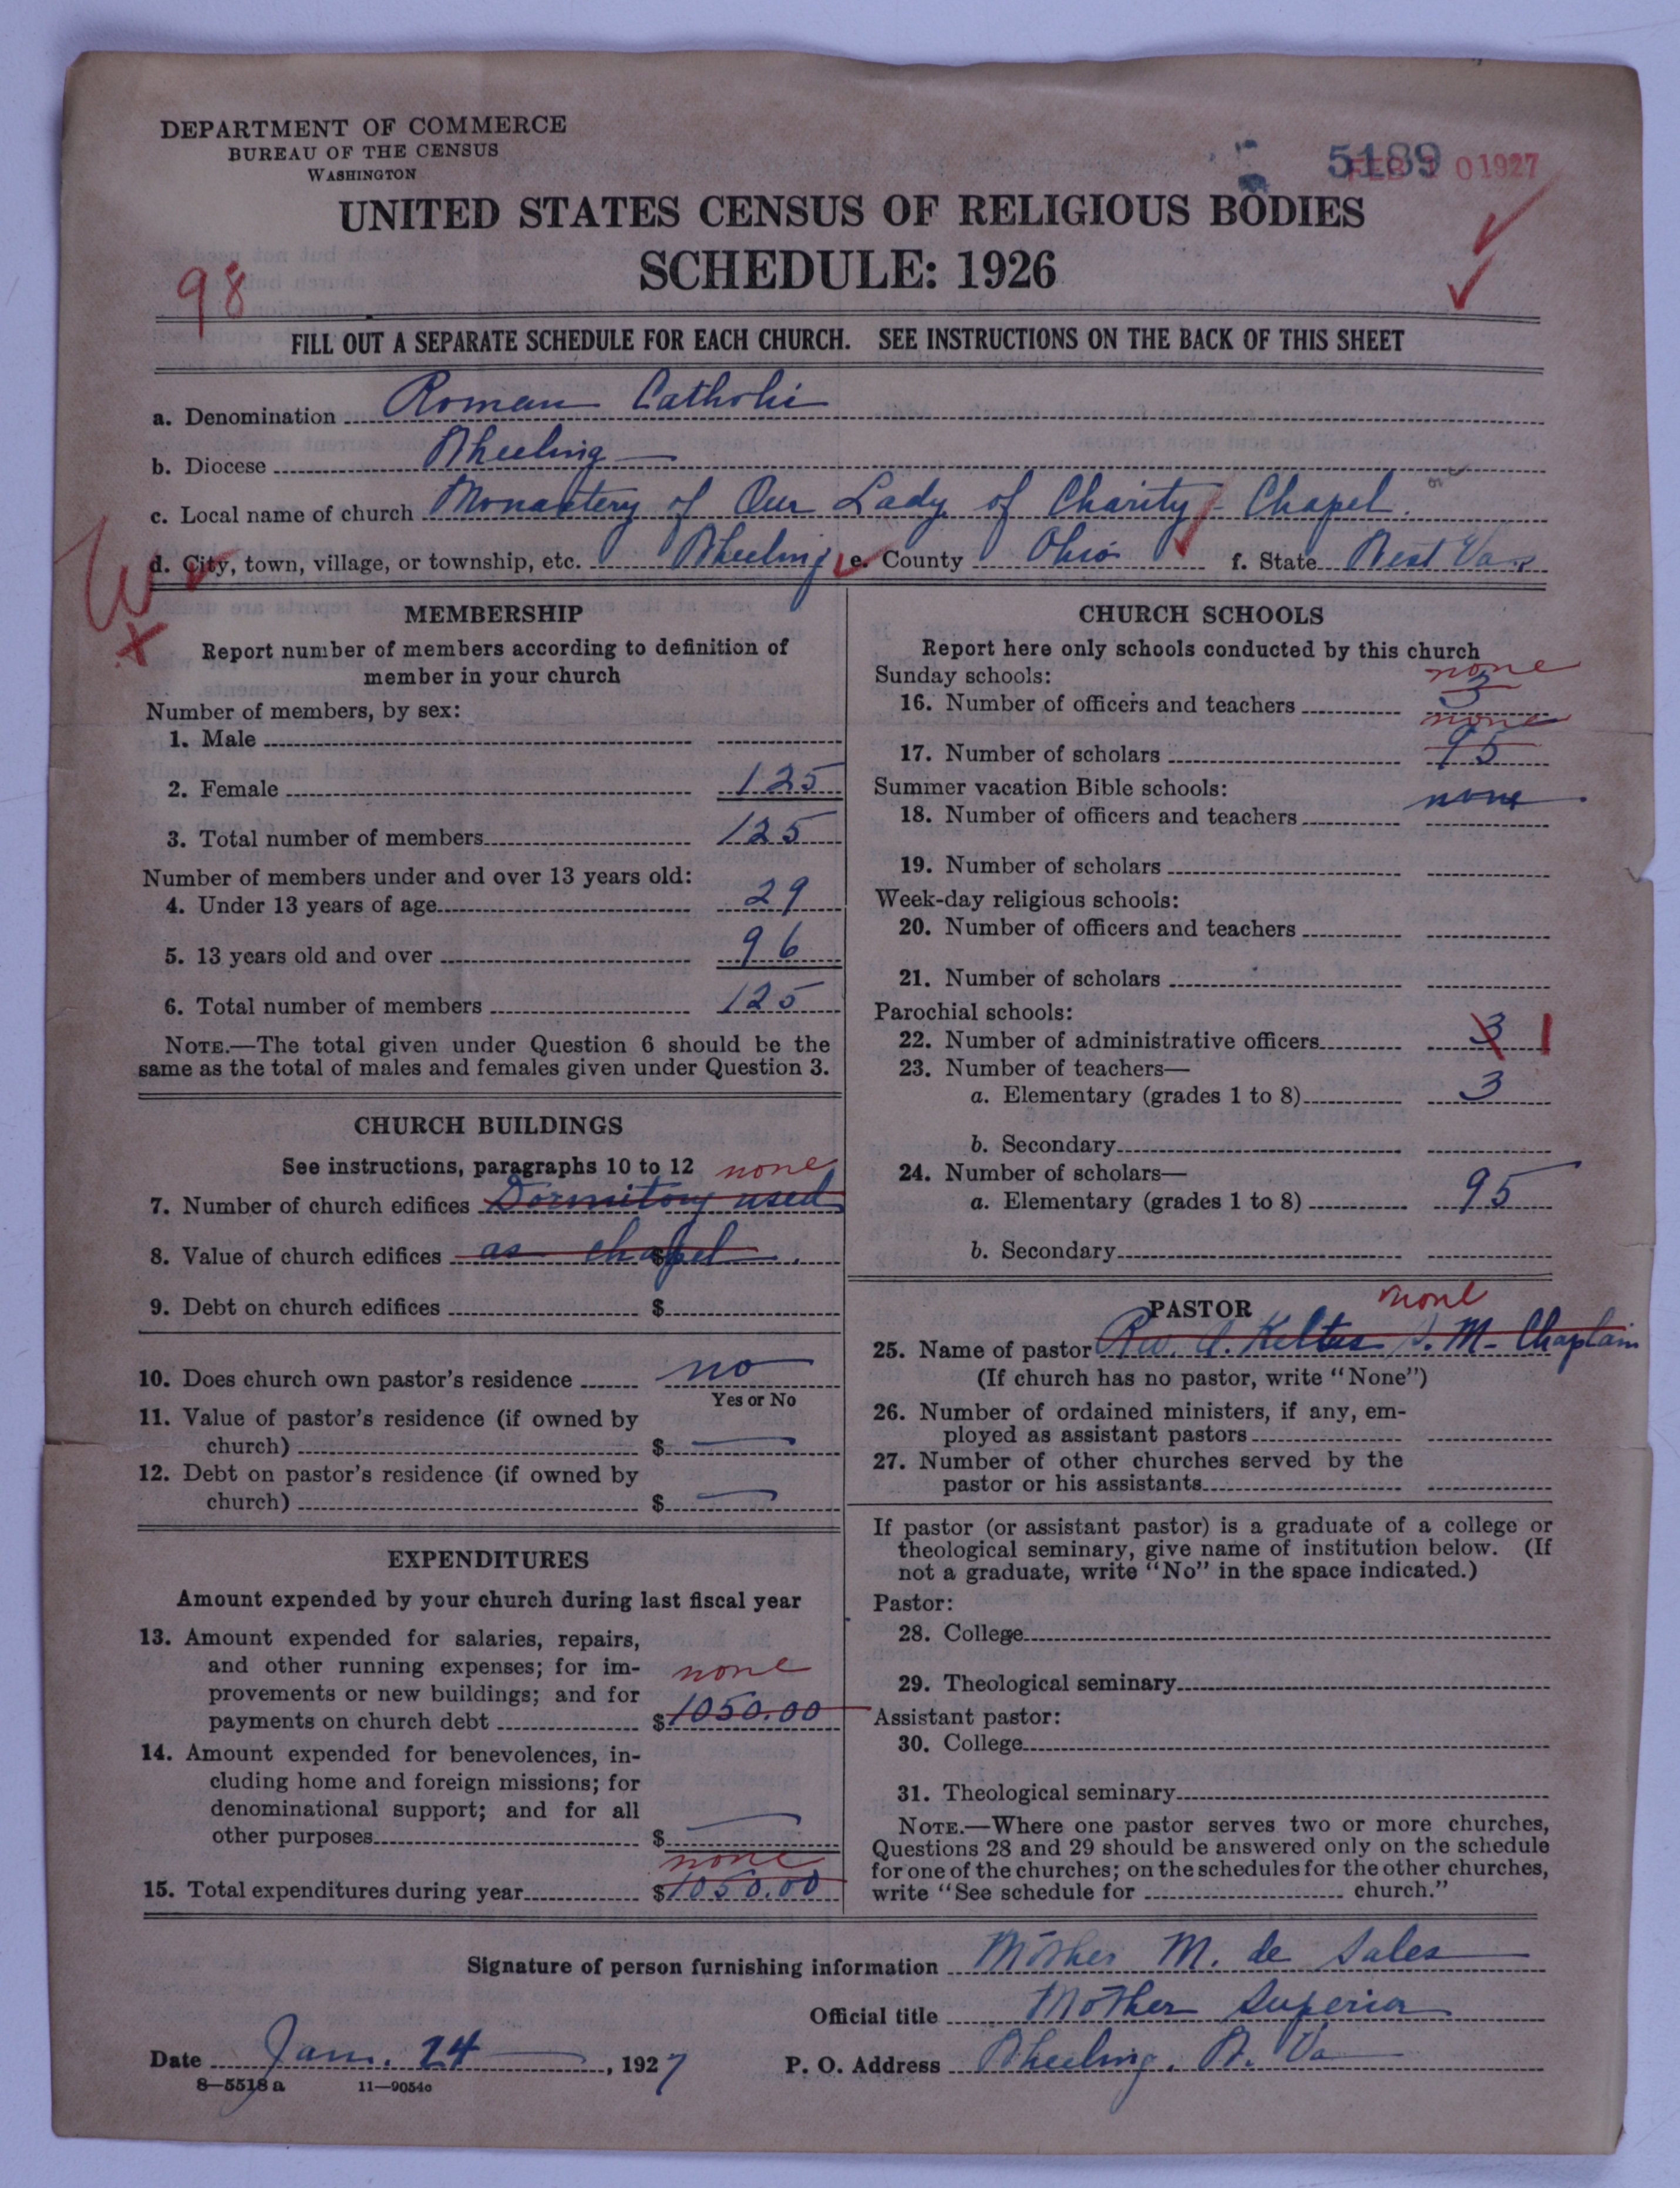 DEPARTMENT OF COMMERCE
BUREAU OF THE CENSUS
WASHINGTON
5189 FEB 10 1927
UNITED STATES CENSUS OF RELIGIOUS BODIES
SCHEDULE: 1926
98
FILL OUT A SEPARATE SCHEDULE FOR EACH CHURCH. SEE INSTRUCTIONS ON THE BACK OF THIS SHEET
a. Denomination Roman Catholic
b. Diocese Wheeling
c. Local name of church Monastery of Our Lady of Charity - Chapel.
d. City, town, village, or township, etc. Wheeling e. County Ohio f. State West Va
MEMBERSHIP
Report number of members according to definition of
member in your church
Number of members, by sex:
1. Male
2. Female 125
3. Total number of members 125
Number of members under and over 13 years old:
4. Under 13 years of age 29
5. 13 years old and over 96
6. Total number of members 125
NOTE.—The total given under Question 6 should be the
same as the total of males and females given under Question 3.
CHURCH BUILDINGS
See instructions, paragraphs 10 to 12 none
7. Number of church edifices Dormitory used
8. Value of church edifices as chapel. $
9. Debt on church edifices $
10. Does church own pastor's residence no
Yes or No
11. Value of pastor's residence (if owned by
church) $ —
12. Debt on pastor's residence (if owned by
church) $ —
EXPENDITURES
Amount expended by your church during last fiscal year
13. Amount expended for salaries, repairs,
and other running expenses; for im-
none
provements or new buildings; and for
payments on church debt $1050.00
14. Amount expended for benevolences, in-
cluding home and foreign missions; for
denominational support; and for all
other purposes $ —
none
15. Total expenditures during year $1050.00
CHURCH SCHOOLS
Report here only schools conducted by this church
Sunday schools: none
16. Number of officers and teachers 3
none
17. Number of scholars 95
Summer vacation Bible schools: none
18. Number of officers and teachers
19. Number of scholars
Week-day religious schools:
20. Number of officers and teachers
21. Number of scholars
Parochial schools:
22. Number of administrative officers 3 1
23. Number of teachers—
a. Elementary (grades 1 to 8) 3
b. Secondary
24. Number of scholars—
a. Elementary (grades 1 to 8) 95
b. Secondary
PASTOR none
25. Name of pastor Rev. A. Keltus S. M. Chaplain
(If church has no pastor, write "None")
26. Number of ordained ministers, if any, em-
ployed as assistant pastors
27. Number of other churches served by the
pastor or his assistants
If pastor (or assistant pastor) is a graduate of a college or
theological seminary, give name of institution below. (If
not a graduate, write "No" in the space indicated.)
Pastor:
28. College
29. Theological seminary
Assistant pastor:
30. College
31. Theological seminary
NOTE.—Where one pastor serves two or more churches,
Questions 28 and 29 should be answered only on the schedule
for one of the churches; on the schedules for the other churches,
write "See schedule for church."
Signature of person furnishing information Mother M. de Sales
Official title Mother Superior
Date Jan. 24, 1927 P. O. Address Wheeling, W. Va
8—5518 a 11—9054c